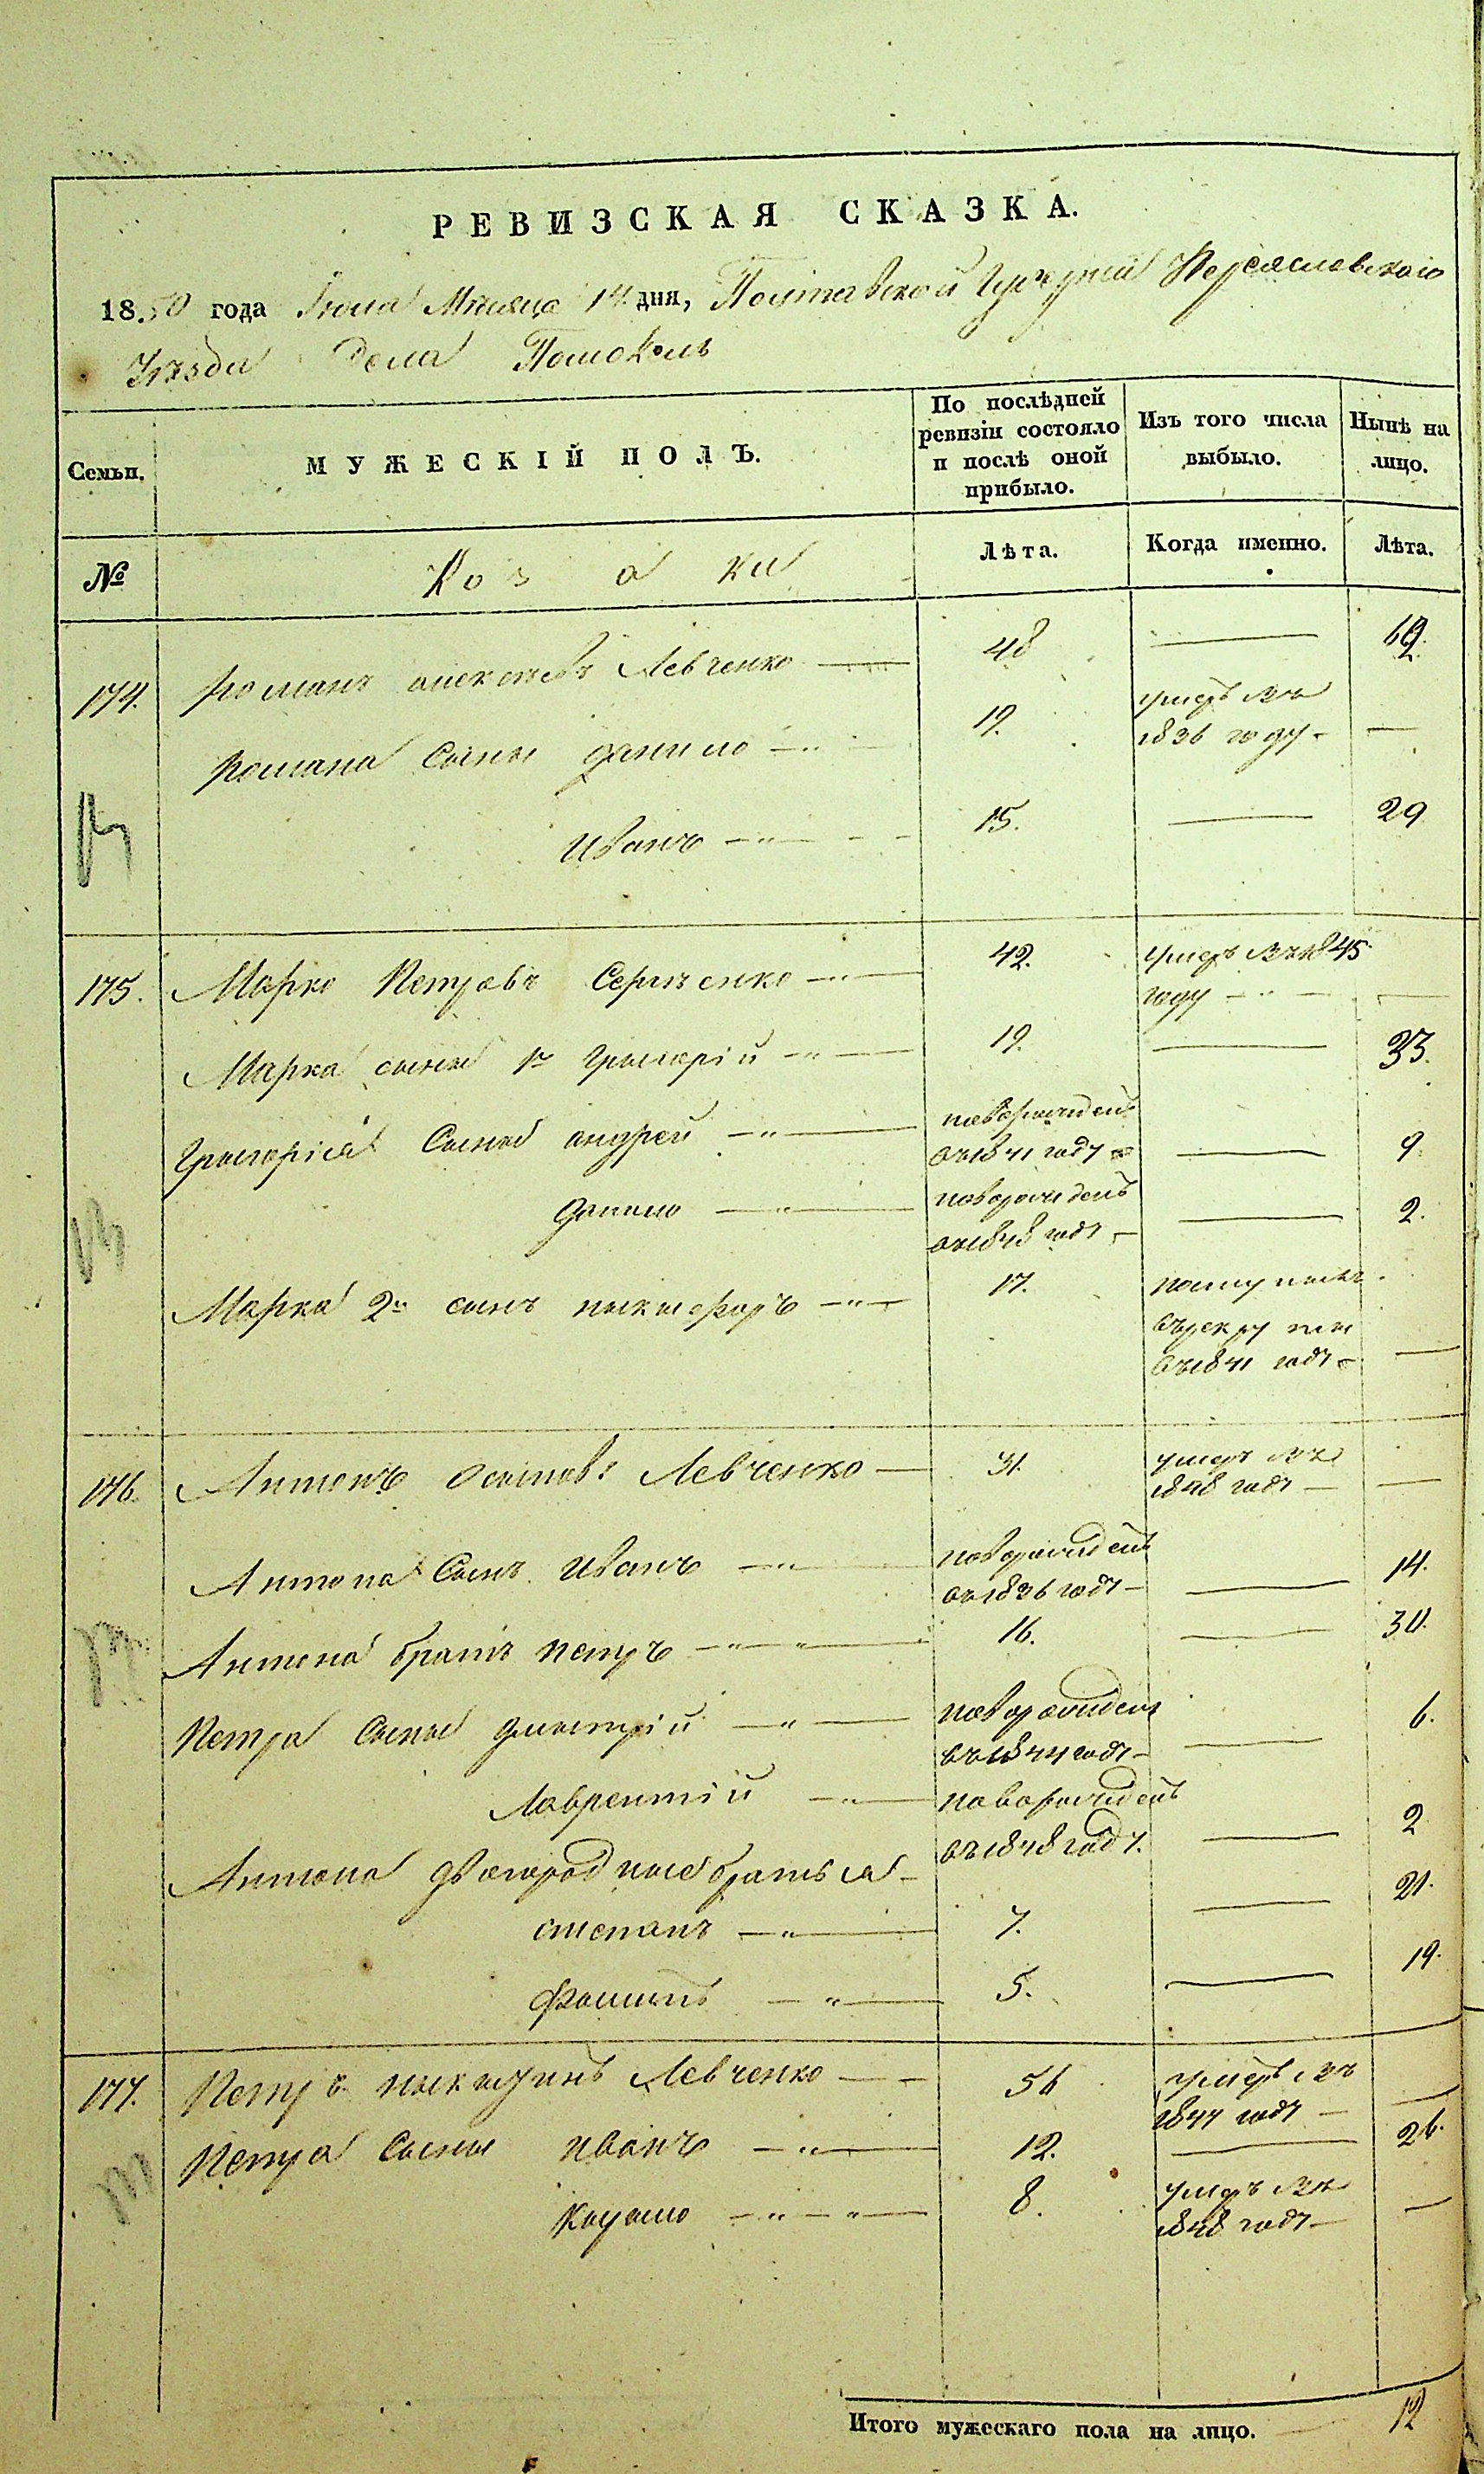 РЕВИЗСКАЯ СКАЗКА.
1850 года Июля Месяца 14 дня, Полтавской Губерніи Переяславскаго
Уѣзда Села Помокель
Семьи.
МУЖЕСКІЙ ПОЛЪ.
По послѣдней ревизіи состояло и послѣ оной прибыло.
Изъ того числа выбыло.
Нынѣ на лицо.
№
Козаки
Лѣта.
Когда именно.
Лѣта.
174. Романъ Алексѣевъ Левченко 48 — 62.
Романа сыны Данило 19. умеръ въ 1836 году —
Иванъ 15. — 29
175. Марко Петровъ Сергѣенко 42. умеръ въ 1845 году —
Марка сыны 1й Григорій 19. — 33.
Григорія сыны Андрей новорожденъ въ 1841 году — 9.
Данило новорожденъ въ 1848 году — 2.
Марка 2й сынъ Никифоръ 17. поступилъ въ рекруты въ 1841 году —
176. Антонъ Осиповъ Левченко 31. умеръ въ 1848 году —
Антона сынъ Иванъ новорожденъ въ 1836 году — 14.
Антона братъ Петръ 16. — 30.
Петра сыны Дмитрій новорожденъ въ 1844 году — 6.
Лаврентій новорожденъ въ 1848 году. — 2
Антона двоюродные братья
Степанъ 7. — 21.
Филипъ 5. — 19.
177. Петръ Никитинъ Левченко 56 умеръ въ 1844 году —
Петра сыны Иванъ 12. — 26.
8. умеръ въ 1848 году —
Итого мужескаго пола на лицо. 12